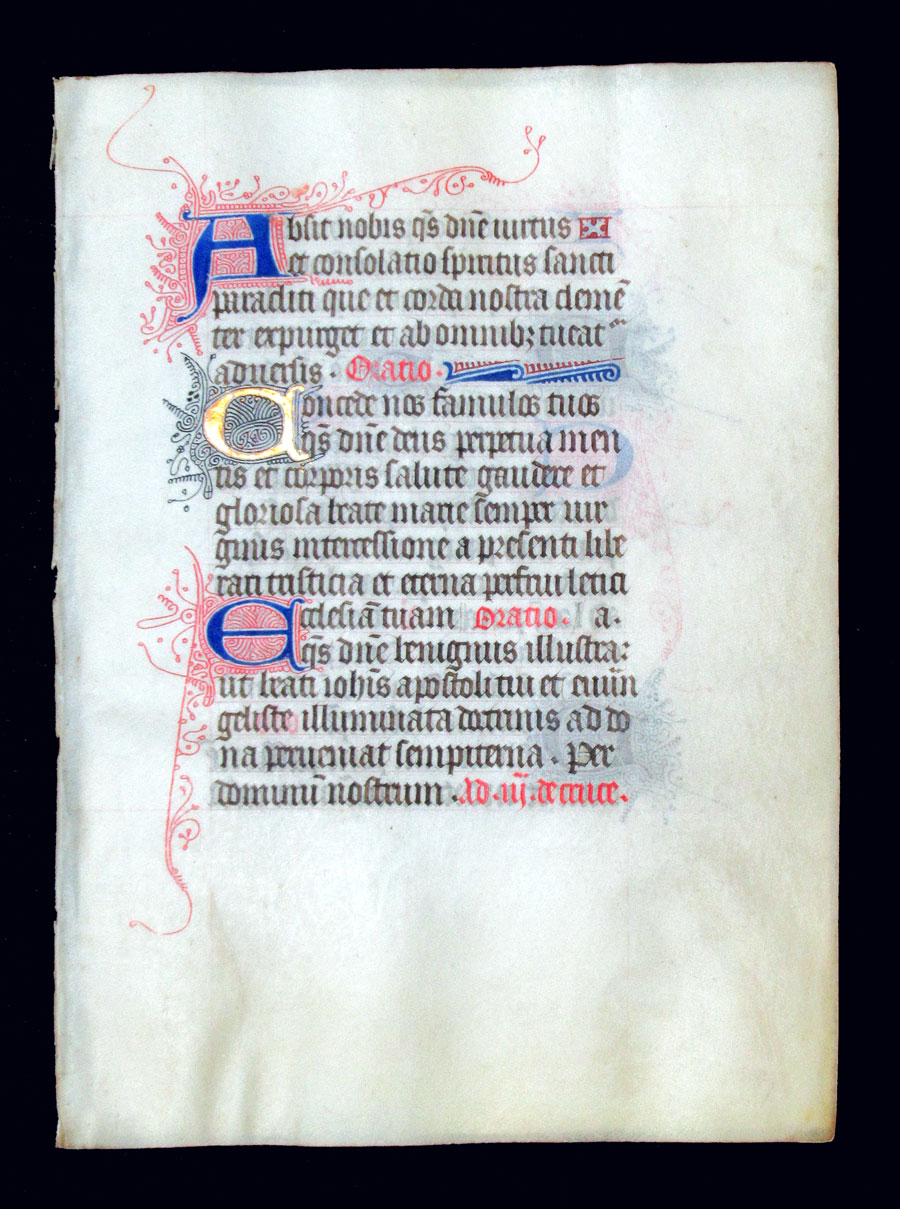 Absit nobis qs̄ dn̄e uirtus
et consolatio spiritus sancti
paracliti que et corda nostra clemē
ter expurget et ab omnibꝫ tueat᷑
aduersis · Oratio ·
Concede nos famulos tuos
qs̄ dn̄e deus perpetua men
tis et corporis salute gaudere et
gloriosa beate marie semper uir
ginis intercessione a presenti libe
rari tristicia et eterna perfrui letici
Ecclesiā tuam Oratio · a ·
qs̄ dn̄e benignus illustra
ut beati ioh̄is apostoli tui et euan
geliste illuminata doctrinis ad do
na perueniat sempiterna · Per
dominū nostrum · Ad · iij · de cruce ·